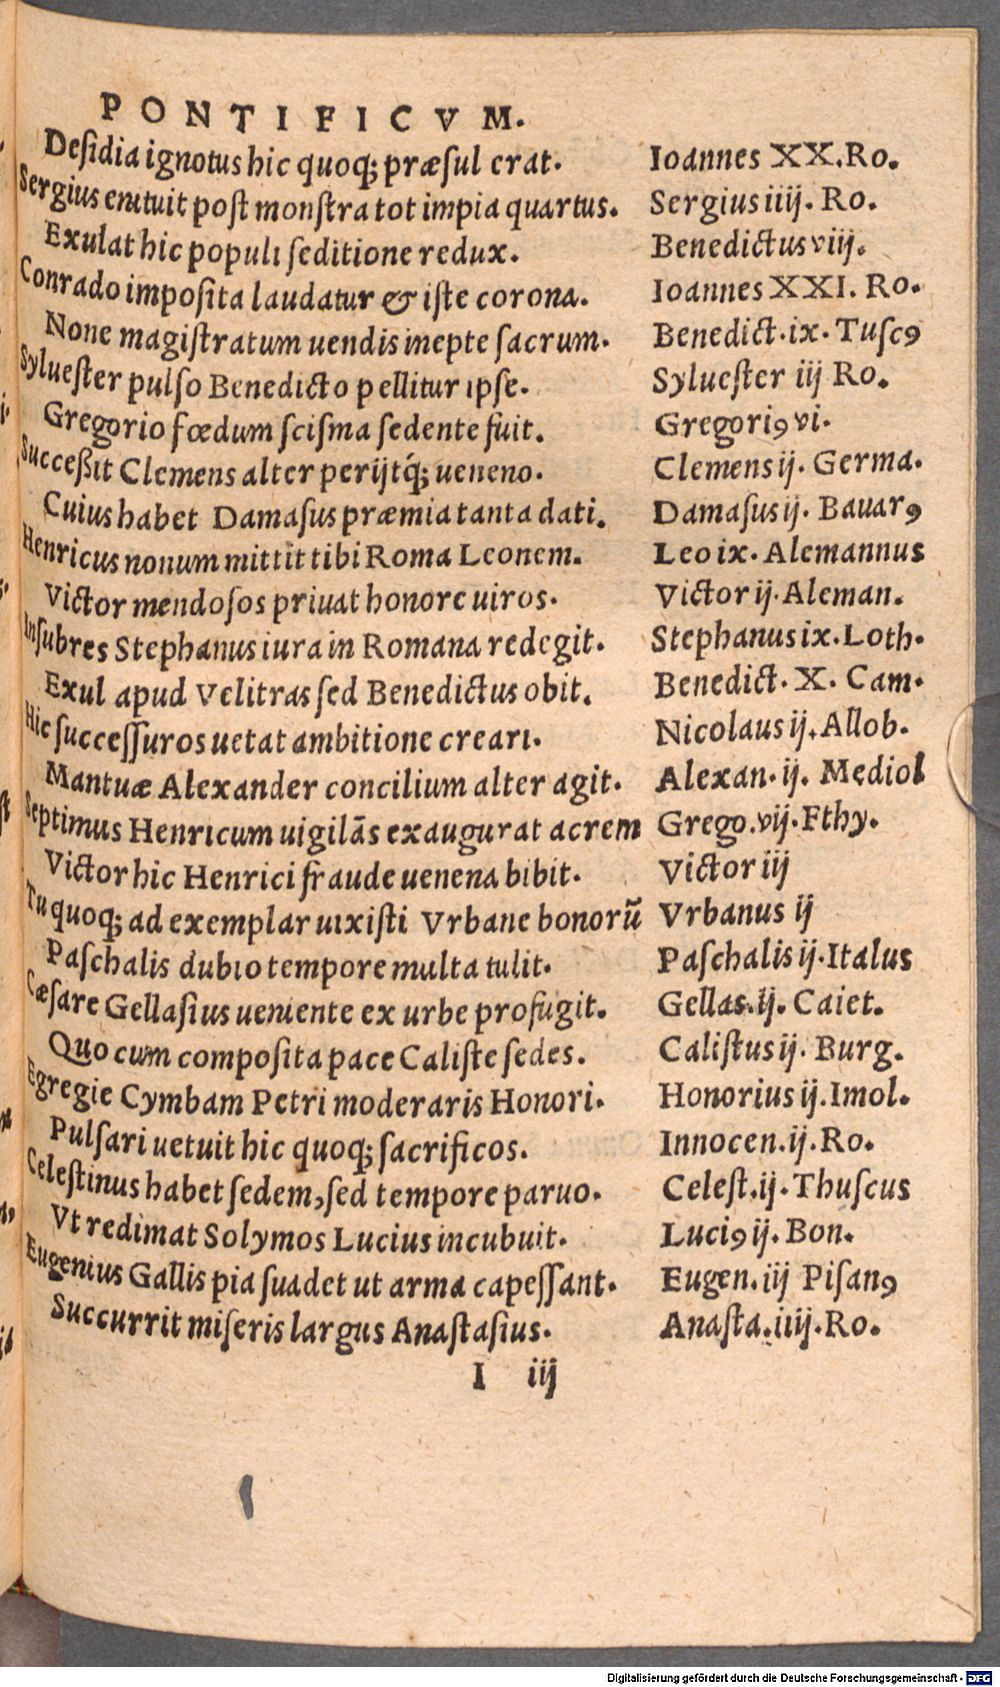 PONTIFICVM.
Desidia ignotus hic quoq; præsul erat. Ioannes XX. Ro.
Sergius enituit post monstra tot impia quartus. Sergius iiij. Ro.
Exulat hic populi seditione redux. Benedictus viij.
Conrado imposita laudatur & iste corona. Ioannes XXI. Ro.
None magistratum uendis inepte sacrum. Benedict. ix. Tuscꝰ
Syluester pulso Benedicto pellitur ipse. Syluester iij Ro.
Gregorio fœdum scisma sedente fuit. Gregoriꝰ vi.
Successit Clemens alter perijtq́; ueneno. Clemens ij. Germa.
Cuius habet Damasus præmia tanta dati. Damasus ij. Bauarꝰ
Henricus nonum mittit tibi Roma Leonem. Leo ix. Alemannus
Victor mendosos priuat honore uiros. Victor ij. Aleman.
Insubres Stephanus iura in Romana redegit. Stephanus ix. Loth.
Exul apud Velitras sed Benedictus obit. Benedict. X. Cam.
Hic successuros uetat ambitione creari. Nicolaus ij. Allob.
Mantuæ Alexander concilium alter agit. Alexan. ij. Mediol
Septimus Henricum uigilãs exaugurat acrem Grego. vij. Fthy.
Victor hic Henrici fraude uenena bibit. Victor iij
Tu quoq; ad exemplar uixisti Vrbane bonorũ Vrbanus ij
Paschalis dubio tempore multa tulit. Paschalis ij. Italus
Cæsare Gellasius ueniente ex urbe profugit. Gellas. ij. Caiet.
Quo cum composita pace Caliste sedes. Calistus ij. Burg.
Egregie Cymbam Petri moderaris Honori. Honorius ij. Imol.
Pulsari uetuit hic quoq; sacrificos. Innocen. ij. Ro.
Celestinus habet sedem, sed tempore paruo. Celest. ij. Thuscus
Vt redimat Solymos Lucius incubuit. Luciꝰ ij. Bon.
Eugenius Gallis pia suadet ut arma capessant. Eugen. iij Pisanꝰ
Succurrit miseris largus Anastasius. Anasta. iiij. Ro.
I iij
Digitalisierung gefördert durch die Deutsche Forschungsgemeinschaft - DFG